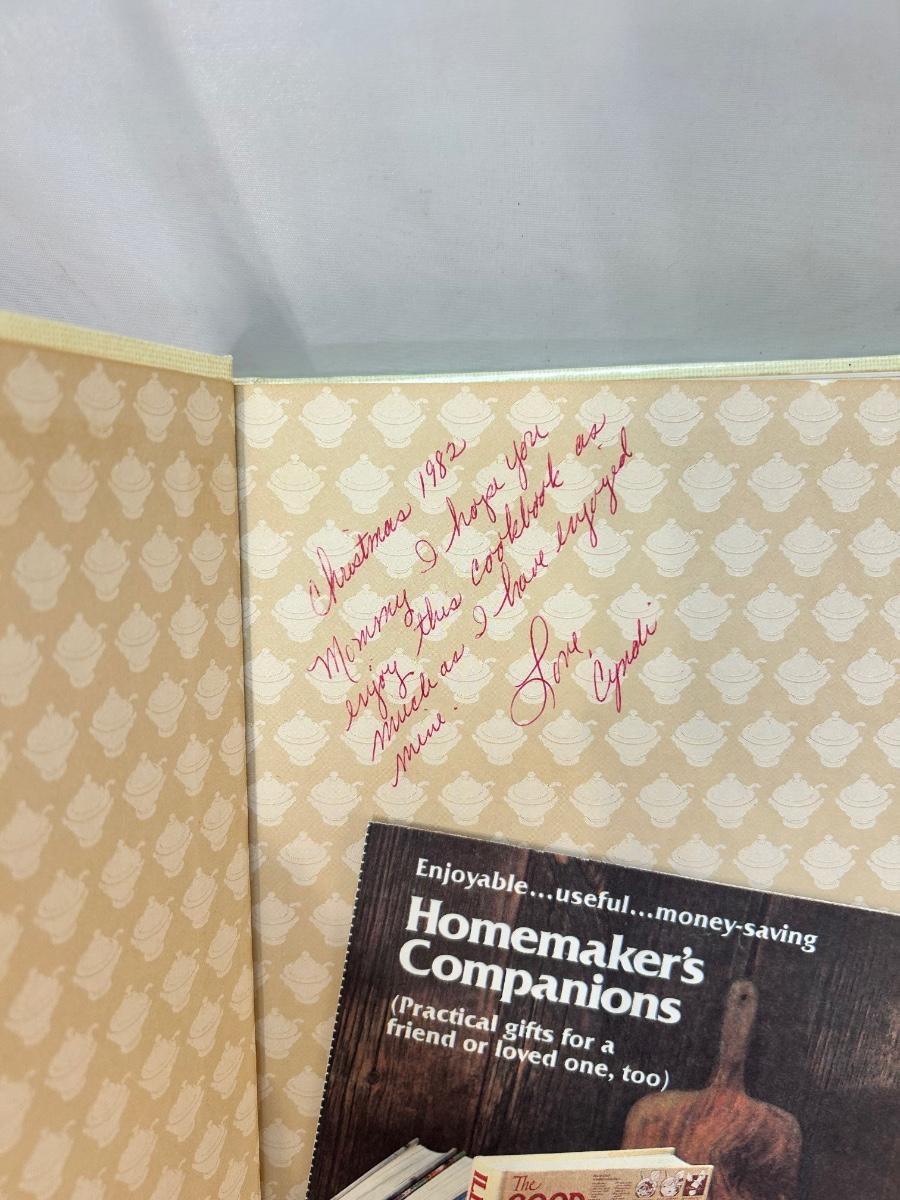 Christmas 1982
Mommy I hope you
enjoy this cookbook as
much as I have enjoyed
mine.
Love,
Cyndi
Enjoyable...useful...money-saving
Homemaker's
Companions
(Practical gifts for a
friend or loved one, too)
The
GOOD